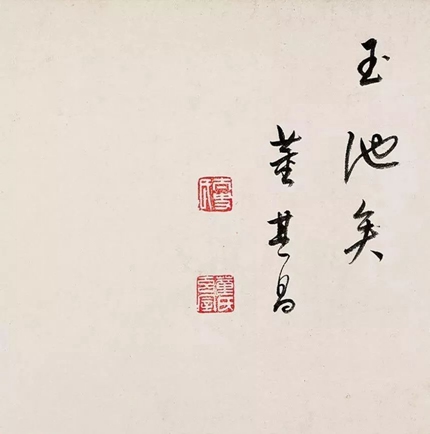 玉池矣
董其昌
董氏玄宰